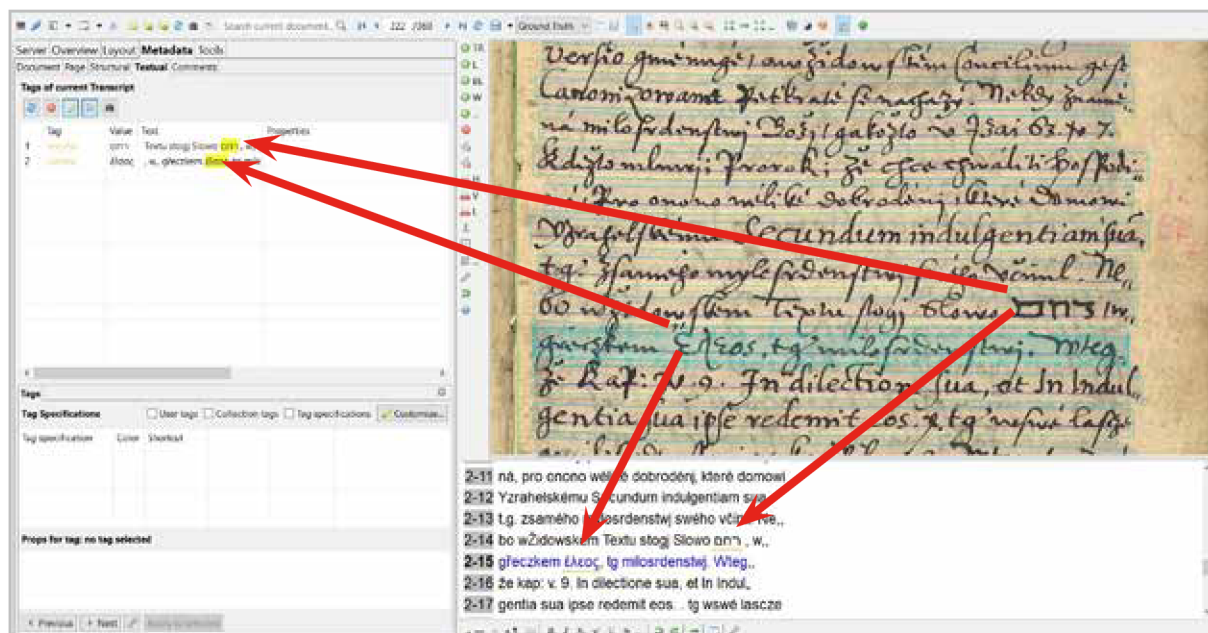 Search current document...
222 /368
Ground Truth
Server Overview Layout Metadata Tools
Document Page Structural Textual Comments
Tags of current Transcript
Tag Value Text Properties
1 רחם Textu stogj Slowo רחם , w,,
2 ἔλεος , w,, gřeczkem ἔλεος, tg mil
Tags
Tag Specifications User tags Collection tags Tag specifications Customise...
Tag specification Color Shortcut
Props for tag: no tag selected
Previous Next
TR
L
BL
W
H
V
Concilium gest
ná milosrdenstwj Božj, gakožto w Jzai 63. w 7.
Když to mluwj Prorok; že chce chwáliti hospodi,,
ná, Pro onono weliké dobrodénj, které Domowi
Yzrahelskému Secundum indulgentiam sua,
tg. zsamého mylosrdenstwj včinil. Ne,,
bo wžidowském Textu stogj Slowo רחם , w,,
gřeczkem ἔλεος, tg milosrdenstwj. Wteg,,
že kap: w. 9. In dilectione sua, et In Indul,,
gentia sua ipse redemit eos. tg wswé lascze
2-11 ná, pro onono weliké dobroděnj, které domowi
2-12 Yzrahelskému Secundum indulgentiam sua,
2-13 t.g. zsamého milosrdenstwj swého včinil. Ne,,
2-14 bo wŽidowském Textu stogj Slowo רחם , w,,
2-15 gřeczkem ἔλεος, tg milosrdenstwj. Wteg,,
2-16 že kap: v. 9. In dilectione sua, et In Indul,,
2-17 gentia sua ipse redemit eos. . tg wswé lascze